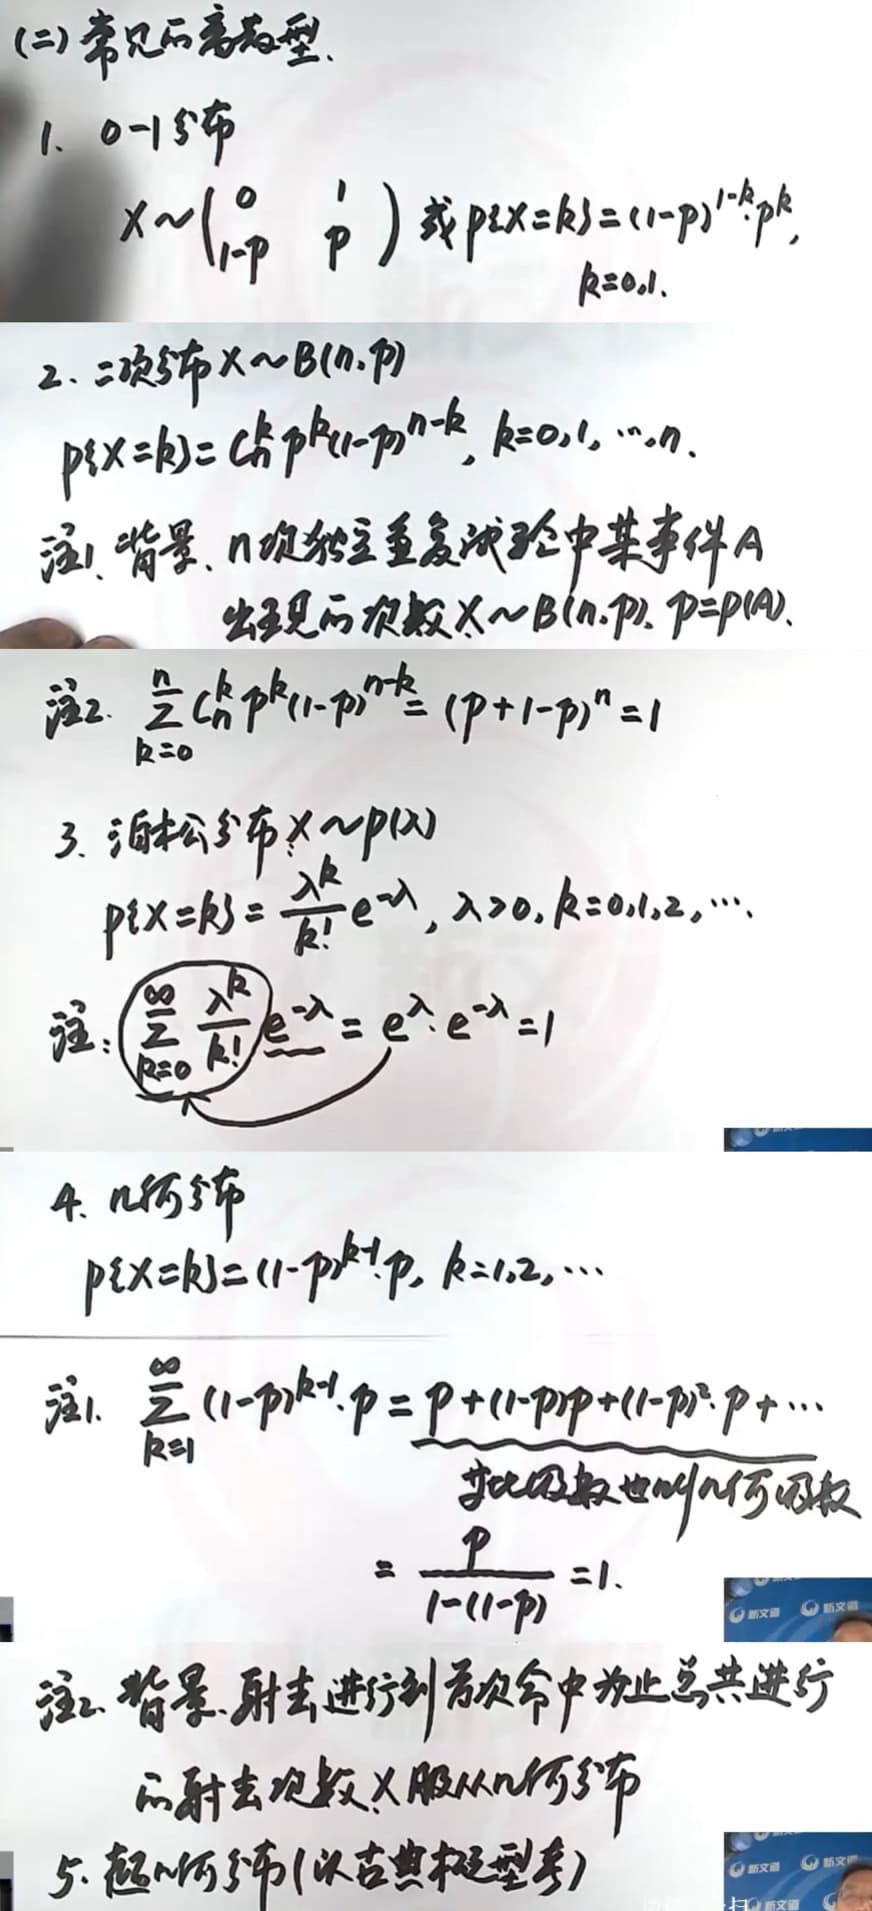 (二) 常见的离散型.
1. 0-1分布
X~(0 1
1-p p) 或 P{X=k}=(1-p)^{1-k}·p^k,
k=0,1.
2. 二项分布 X~B(n,p)
P{X=k}=C_n^k p^k(1-p)^{n-k}, k=0,1,…,n.
注1. 背景. n次独立重复试验中某事件A
出现的次数X~B(n,p). p=P(A).
注2. ∑_{k=0}^{n} C_n^k p^k(1-p)^{n-k}=(p+1-p)^n=1
3. 泊松分布 X~P(λ)
P{X=k}=\frac{λ^k}{k!}e^{-λ}, λ>0, k=0,1,2,….
注: ∑_{k=0}^{∞} \frac{λ^k}{k!} e^{-λ}=e^λ·e^{-λ}=1
4. 几何分布
P{X=k}=(1-p)^{k-1}·p, k=1,2,…
注1. ∑_{k=1}^{∞} (1-p)^{k-1}·p=p+(1-p)p+(1-p)^2·p+…
等比级数也叫几何级数
=\frac{p}{1-(1-p)}=1.
新文道 新文道
注2. 背景. 射击进行到首次命中为止总共进行
的射击次数X服从几何分布
5. 超几何分布(以古典概型考)
新文道 新文
新文道